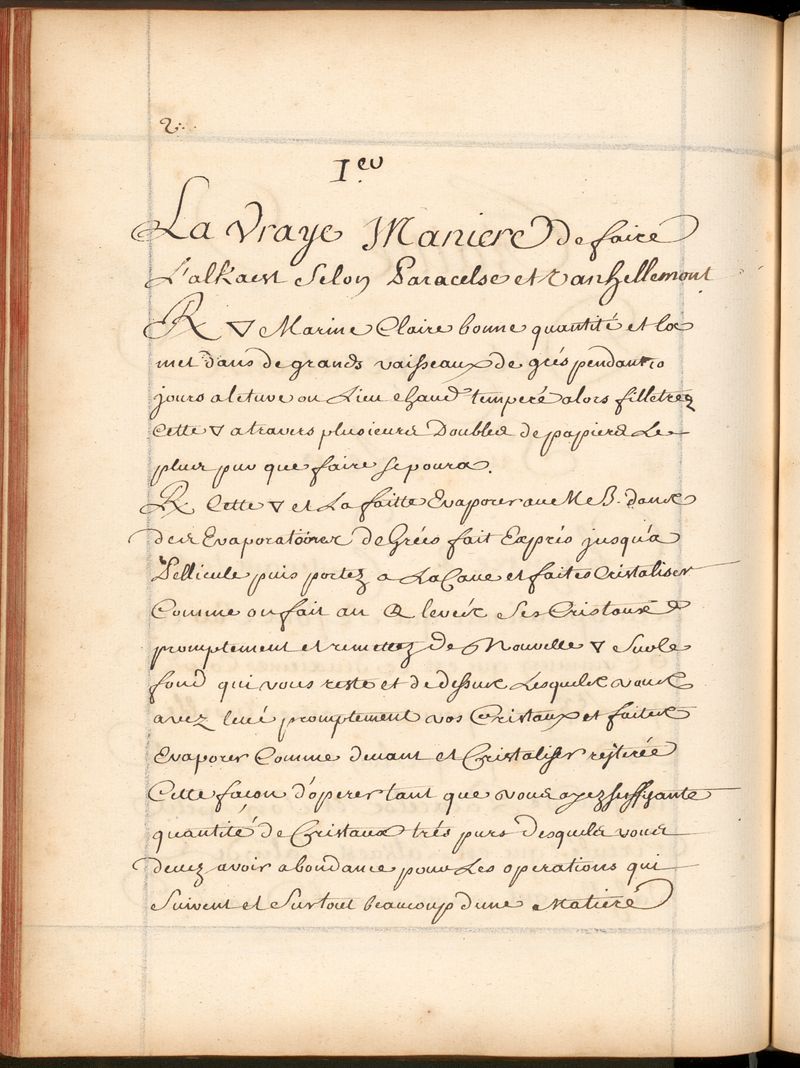 2.
I.er
La Vraye Maniere de faire
L'alkaest Selon Paracelse et Vanhellemont
℞ 🜄 Marine Claire bonne quantité et la
met dans de grands vaisseaux de grés pendant 10
jours a letuve ou Lieu chaud temperé alors filletrez
Cette 🜄 a travers plusieurs Doubles de papiers Le
plus pur que faire se poura.
℞ Cette 🜄 et La faitte Evaporer au M B. dans
des Evaporatoires de Grées fait Exprés jusqu'a
Pellicule puis portez a La Cave et faites Cristaliser
Comme on fait au levéz Ses Cristaux
promptement et remettez de Nouvelle 🜄 Sur le
fond qui vous reste et de dessus Lesquels vous
avez levé promptement vos Cristaux et faites
Evaporer Comme devant et Cristaliser reÿterée
Cette façon d'operer tant que vous ayez suffisante
quantité de Cristaux trés purs desquels vous
devez avoir abondance pour Les operations qui
Suivent et Surtout beaucoup dune Matiere